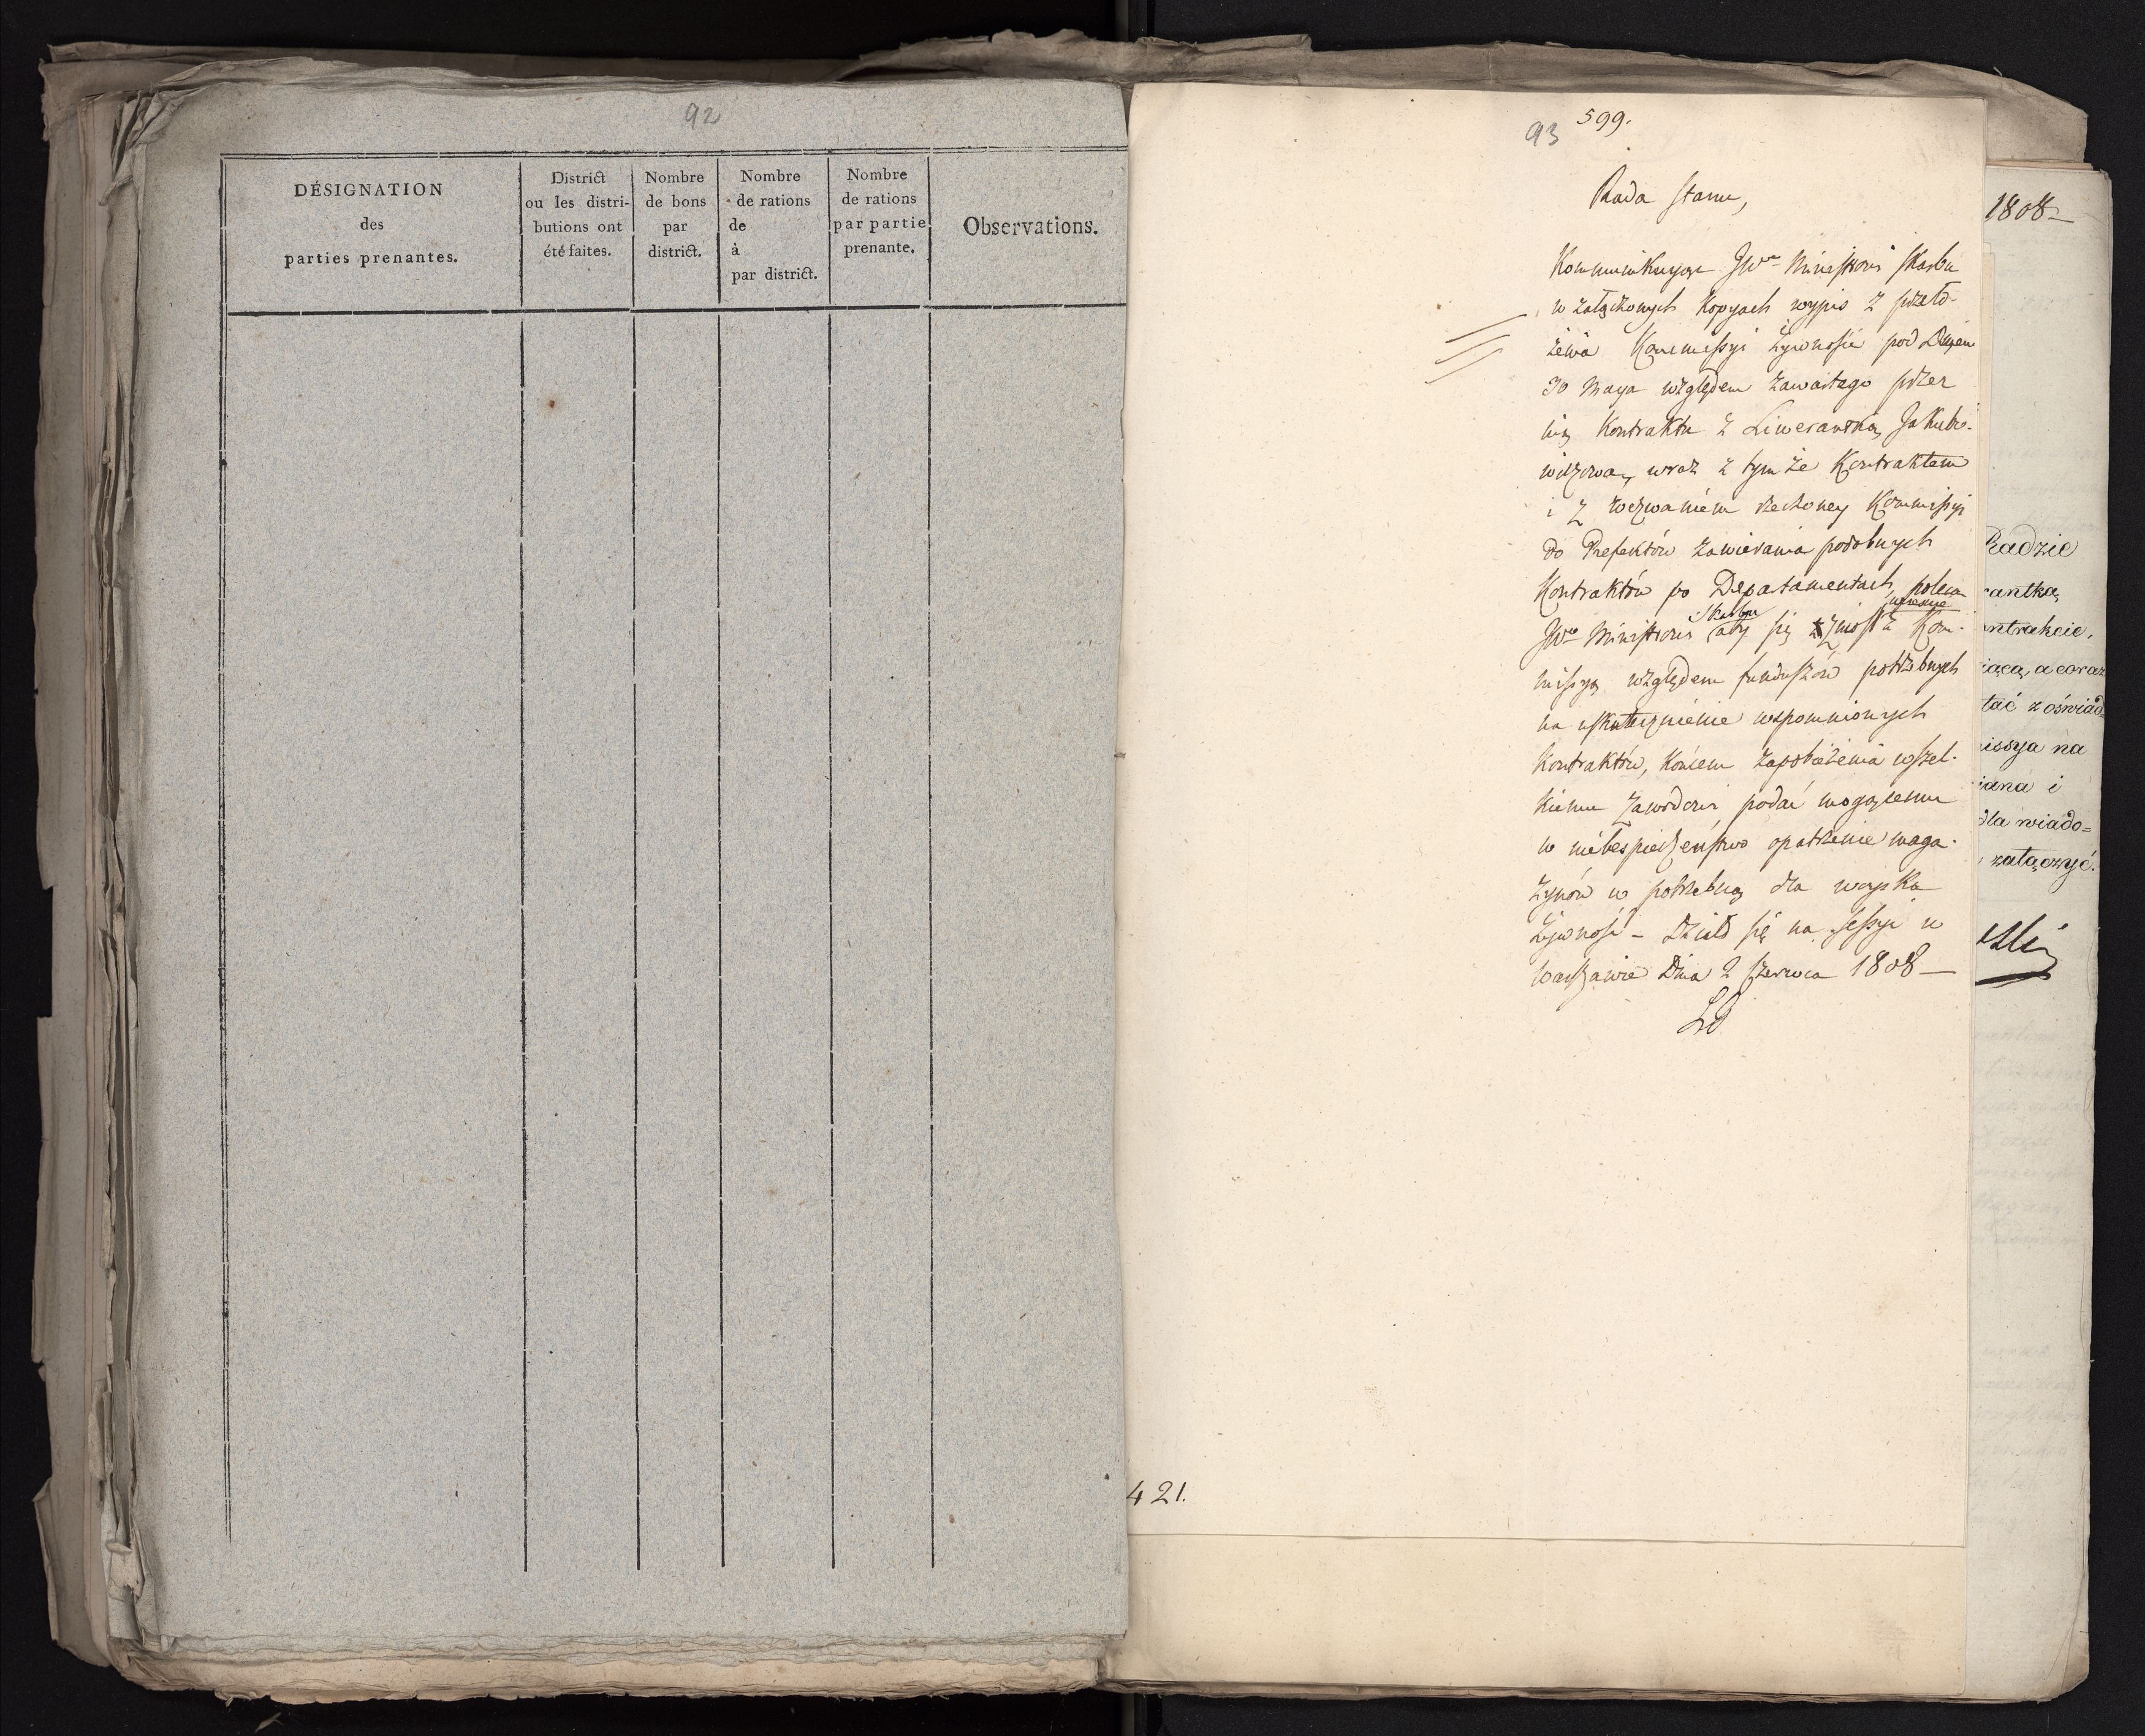 92
DÉSIGNATION
des
parties prenantes.
District
ou les distri-
butions ont
été faites.
Nombre
de bons
par
district.
Nombre
de rations
de
à
par district.
Nombre
de rations
par partie
prenante.
Observations.
93 599.
Rada Stanu,
Kommunikuyąc JWu Ministrowi Skarbu
w załączonych Kopyach wypis z przeło-
żenia Kommissyi Żywności pod Dniem
30 Maya względem zawartego przez
nią Kontraktu z Liwerantką Jakubo-
wiczową, wraz z tymże Kontraktem
i z wezwaniem rzeczoney Kommissyi
do Prefektów zawierania podobnych
Kontraktów po Departamentach, poleca
Skarbu
JWu Ministrowi aby się zniósł z Kom-
missyą względem funduszów potrzebnych
na uskutecznienie wspomnionych
Kontraktów, końcem zapobieżenia wszel-
kiemu zawodowi, podać mogącemu
w niebespieczeństwo opatrzenie maga-
zynów w potrzebną dla woyska
Żywność – Działo się na Sessyi w
Warszawie Dnia 2 Czerwca 1808 –
421.
1808
Radzie
rantką
ntrakcie,
iącą, a coraz
tać z oświad
issya na
iana i
dla wiado=
załączyć.